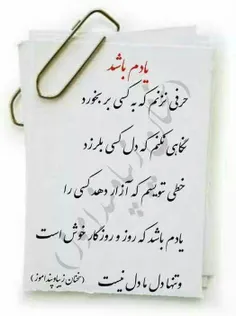 یادم باشد
حرفی نزنم که به کسی بر بخورد
نگاهی نکنم که دل کسی بلرزد
خطی ننویسم که آزار دهد کسی را
یادم باشد که روز و روزگار خوش است
وتنها دل ما دل نیست
(سخنان زیبا و پند آموز)